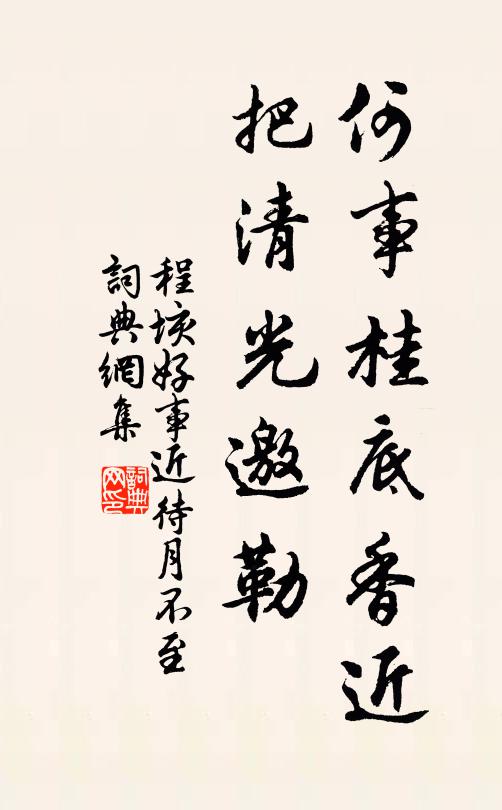 何事桂底香近
把清光邀勒
程垓好事近待月不至
詞典網集
詞典
网印